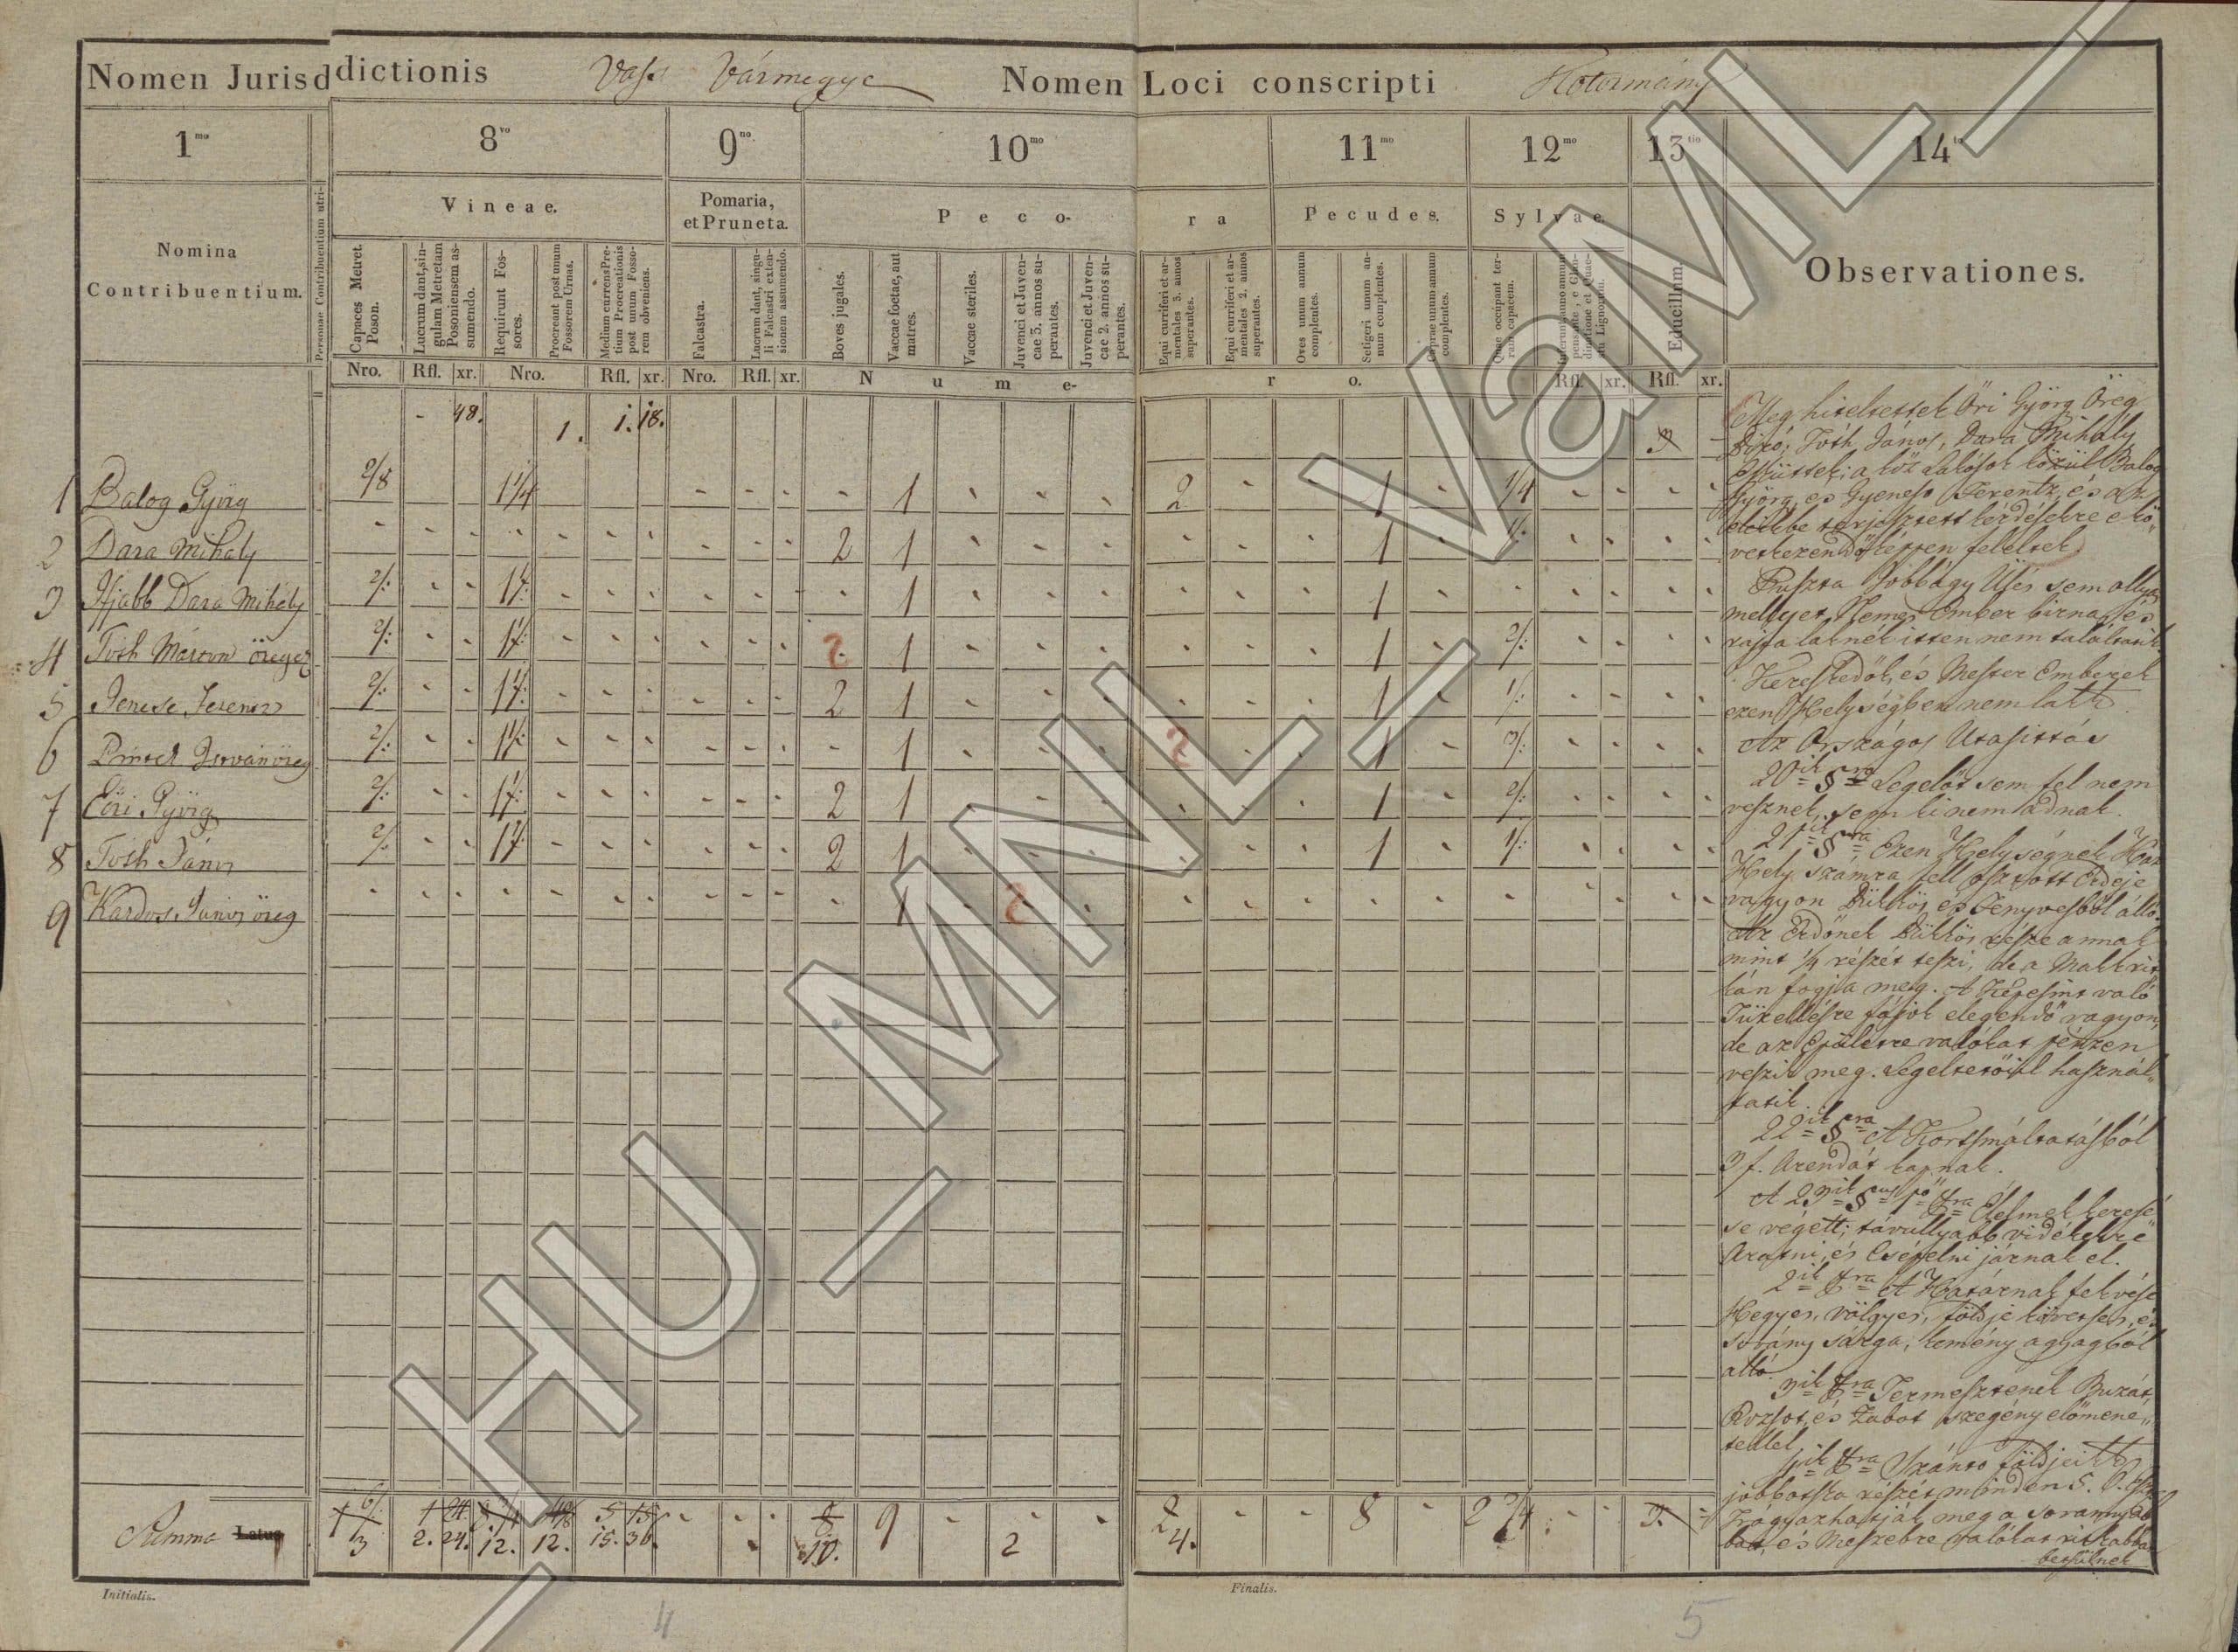 Nomen Jurisddictionis Vass Vármegye Nomen Loci conscripti Kotormány
1mo 8vo 9no 10mo 11mo 12mo 13tio 14to
Nomina Contribuentium.
Personae Contribuentium utri-
Vineae.
Pomaria, et Pruneta.
Peco-
ra
Pecudes.
Sylvae.
Educillum.
Observationes.
Capaces Metret. Poson.
Lucrum dant, singulam Metretam Posoniensem assumendo.
Requirunt Fossores.
Procreant post unum Fossorem Urnas.
Medium currens Pretium Procreationis post unum Fossorem obveniens.
Falcastra.
Lucrum dant, singuli Falcastri extensionem assumendo.
Boves jugales.
Vaccae foetae, aut matres.
Vaccae steriles.
Juvenci et Juvencae 3. annos superantes.
Juvenci et Juvencae 2. annos superantes.
Equi curriferi et armentales 3. annos superantes.
Equi curriferi et armentales 2. annos superantes.
Oves unum annum complentes.
Setigeri unum annum complentes.
Caprae unum annum complentes.
Quae occupant terram capacem.
Nro. Rfl. xr. Nro. Rfl. xr. Nro. Rfl. xr. Nume-
ro. Rfl. xr. Rfl. xr.
- 48. 1. 1. 18. 3 -
1 Balog Györg 2/8 1 1/4 - - - - 1 - - - 2 - - 1 - 1/4 - - - -
2 Dara Mihaly - - - - - - - - - - 2 1 - - - - - - 1 - 1/: - - - -
3 Ifjabb Dara Mihály 2/: - - 1 1/: - - - - - - - 1 - - - - - - 1 - - - - - -
4 Tóth Márton öregeb 2/: - - 1 1/: - - - - - - 2 1 - - - - - - 1 - 2/: - - - -
5 Jenese Ferentz 2/: - - 1 1/: - - - - - - 2 1 - - - - - - 1 - 1/: - - - -
6 Pintér Istvan öreg 2/: - - 1 1/: - - - - - - - 1 - - - 2 - - 1 - 3/: - - - -
7 Eöri Györg 2/: - - 1 1/: - - - - - - 2 1 - - - - - - 1 - 2/: - - - -
8 Tóth János 2/: - - 1 1/: - - - - - - 2 1 - - - - - - 1 - 1/: - - - -
9 Kardos János öreg - - - - - - - - - - - 1 - 2 - - - - - - - - - - -
Meg hiteltettek Őri Györg Öreg
Biró, Tóth János, Dara Mihály
Esküttek; a köz Lakósok közül Balog
Györg, es Gyenese Ferentz, és az
eleikbe terjesztett kérdésekre e kö-
vetkezendőképpen feleltek
Puszta Jobbágy Ülés sem ollyan
mellyet Nemes Ember birna, és
rajta laknék itten nem találtatik.
Kereskedők, és Mester Emberek
ezen Helységben nem lakk
Az Országos Utasittás
20ik §ra Legelőt sem fel nem
vesznek, sem ki nem adnak.
21ik §ra Ezen Helységnek Ház
Hely számra fell osztott Erdeje
vagyon Bükkös es Fenyvesből álló.
Az Erdőnek Bükkös része annak
mint 1/4 részét teszi, de a Makk rit
kán fogja meg. A Keresint való
Tüzellésre fájok elegendő vagyon,
de az Epületre valókat pénzen
veszik meg. Legeltetőűl használ-
tatik.
22ik §ra A Kortsmáltatásból
3 f. Arendát kapnak.
A 23ik §us 1ő ₰ra Élelmek keresé
se végett, távullyabb vidékekre
Aratni, és Csépelni járnak el.
2ik ₰ra A Határnak fekvése
Hegyes, völgyes, földje köveses, és
sovány sárga, kemény agyagból
álló.
3ik ₰ra Termesztenek Buzát
Rozsot, és Zabot szegény előmene-
tellel
4ik ₰ra Szántó földjeikk
jobbatska részét minden 5. 6. Esz
Trágyázhatják meg a soványab
bat, és Meszebre valókat ritkabban
betsülnek
Summa Latus
6/: 1 24. 8 3/4 4/8 5 15 - - - 8 9 - - 2 - - 8 - 2 2/4 - - 3. -
3 2. 24. 12. 12. 15. 36. 10. 2 4.
Initialis.
Finalis.
4 5
_HU_MNL_VaML_